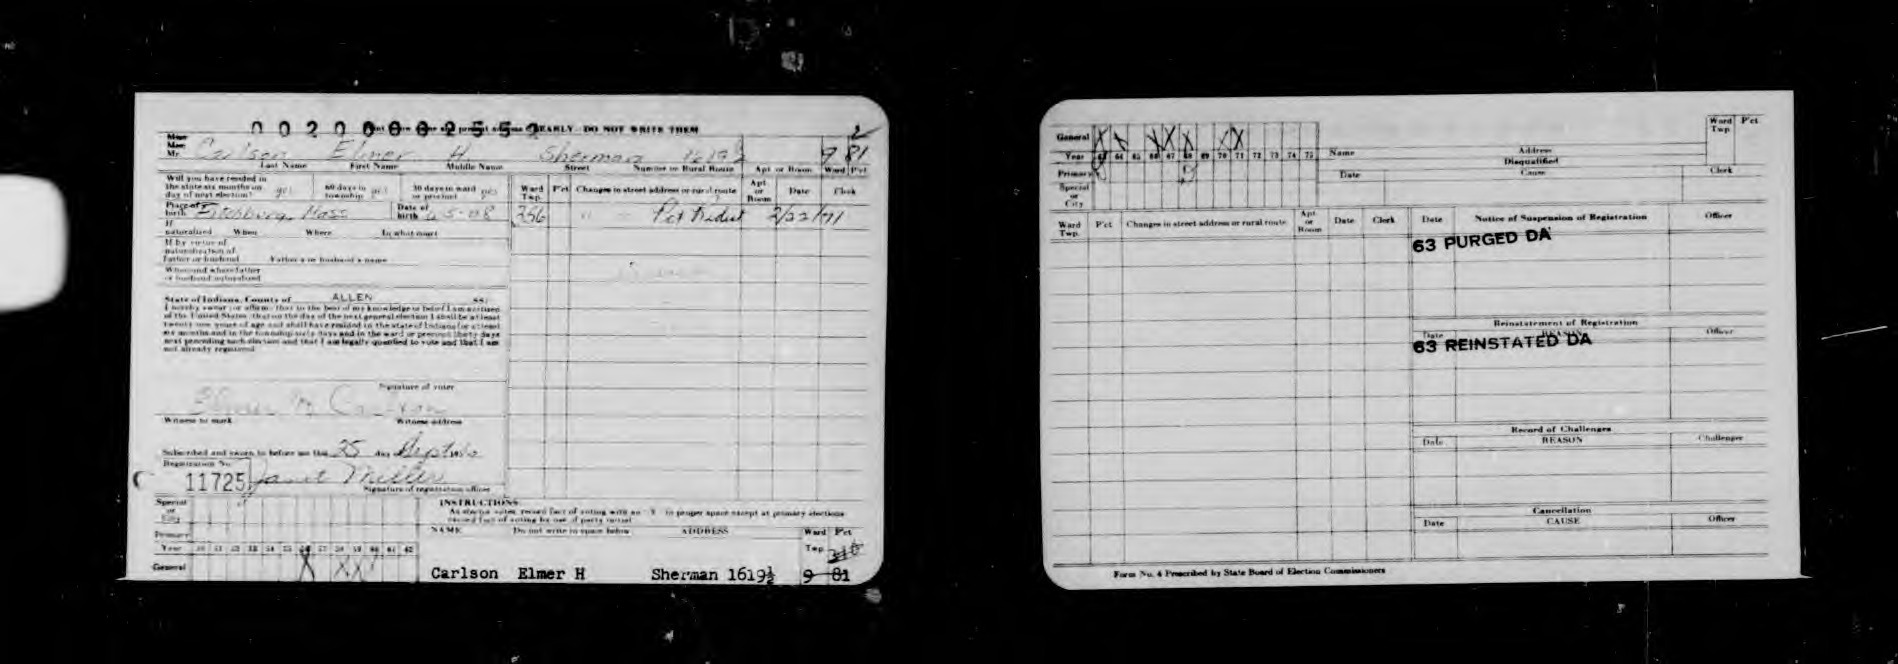 0 0 2 0 0 0 0 2 5 5 2
CLEARLY DO NOT WRITE THEM
Mr. Carlson Elmer H. Sherman 1619½ 9 81
Last Name First Name Middle Name Street Number or Rural Route Apt or Room Ward Pct
Will you have resided in the state six months on day of next election? yes 60 days in township yes 30 days in ward or precinct yes
Ward Twp. Pct Changes in street address or rural route Apt or Room Date Clerk
Place of birth Fitchburg, Mass Date of birth 6-5-08
256 " " Pct Redist 2/22/71
If naturalized When Where In what court
If by virtue of naturalization of Father or husband Father's or husband's name
When and where father or husband naturalized
State of Indiana, County of ALLEN ss:
I hereby swear (or affirm) that to the best of my knowledge or belief I am a citizen
of the United States, that on the day of the next general election I shall be at least
twenty-one years of age and shall have resided in the state of Indiana for at least
six months and in the township sixty days and in the ward or precinct thirty days
next preceding such election and that I am legally qualified to vote and that I am
not already registered
Signature of voter
Elmer H Carlson
Witness to mark Witness address
Subscribed and sworn to before me this 25 day Sept
Registration No.
11725 Janet Miller
Signature of registration officer
Special or City
Primary
Year 50 51 52 53 54 55 56 57 58 59 60 61 62
General X X X
INSTRUCTIONS
As elector votes, record fact of voting with an X in proper space except at primary elections
record fact of voting by use of party initial
NAME Do not write in space below ADDRESS Ward Twp. Pct
Carlson Elmer H Sherman 1619½ 9 81
General X X X X X X X
Year 63 64 65 66 67 68 69 70 71 72 73 74 75
Primary
Special or City
Name Address Ward Twp. Pct
Disqualified
Date Cause Clerk
Ward Twp. Pct Changes in street address or rural route Apt or Room Date Clerk
Date Notice of Suspension of Registration Officer
63 PURGED DA
Reinstatement of Registration
Date REASON Officer
63 REINSTATED DA
Record of Challenges
Date REASON Challenger
Cancellation
Date CAUSE Officer
Form No. 4 Prescribed by State Board of Election Commissioners